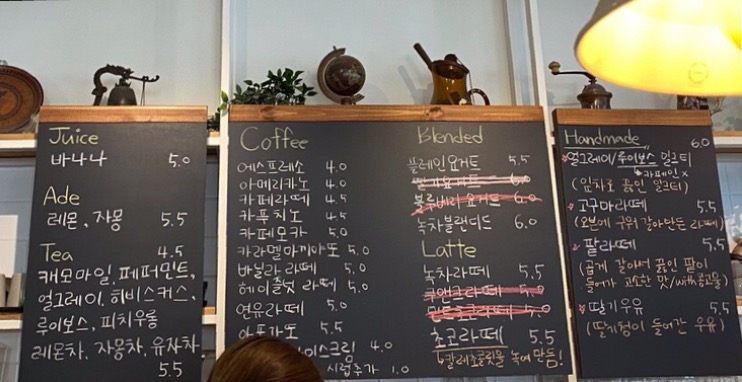 Juice
바나나 5.0
Ade
레몬, 자몽 5.5
Tea 4.5
캐모마일, 페퍼민트,
얼그레이, 히비스커스,
루이보스, 피치우롱
레몬차, 자몽차, 유자차
5.5
Coffee
에스프레소 4.0
아메리카노 4.0
카페라떼 4.5
카푸치노 4.5
카페모카 5.0
카라멜마끼아또 5.0
바닐라 라떼 5.0
헤이즐넛 라떼 5.0
연유라떼 5.0
아포가토 5.5
아이스크림 4.0
시럽추가 1.0
Blended
플레인요거트 5.5
딸기요거트 6.0
블루베리요거트 6.0
녹차블랜디드 6.0
Latte
녹차라떼 5.5
쿠앤크라떼 5.0
민트초코라떼 5.0
초코라떼 5.5
칼레초콜릿을 녹여 만듬!
Handmade 6.0
얼그레이/루이보스 밀크티
카페인 x
(잎차로 끓인 밀크티)
고구마라떼 5.5
(오븐에 구워 갈아만든 라떼)
팥라떼 5.5
(곱게 갈아서 끓인 팥이
들어가 고소한 맛/with콩고물)
딸기우유 5.5
(딸기청이 들어간 우유)